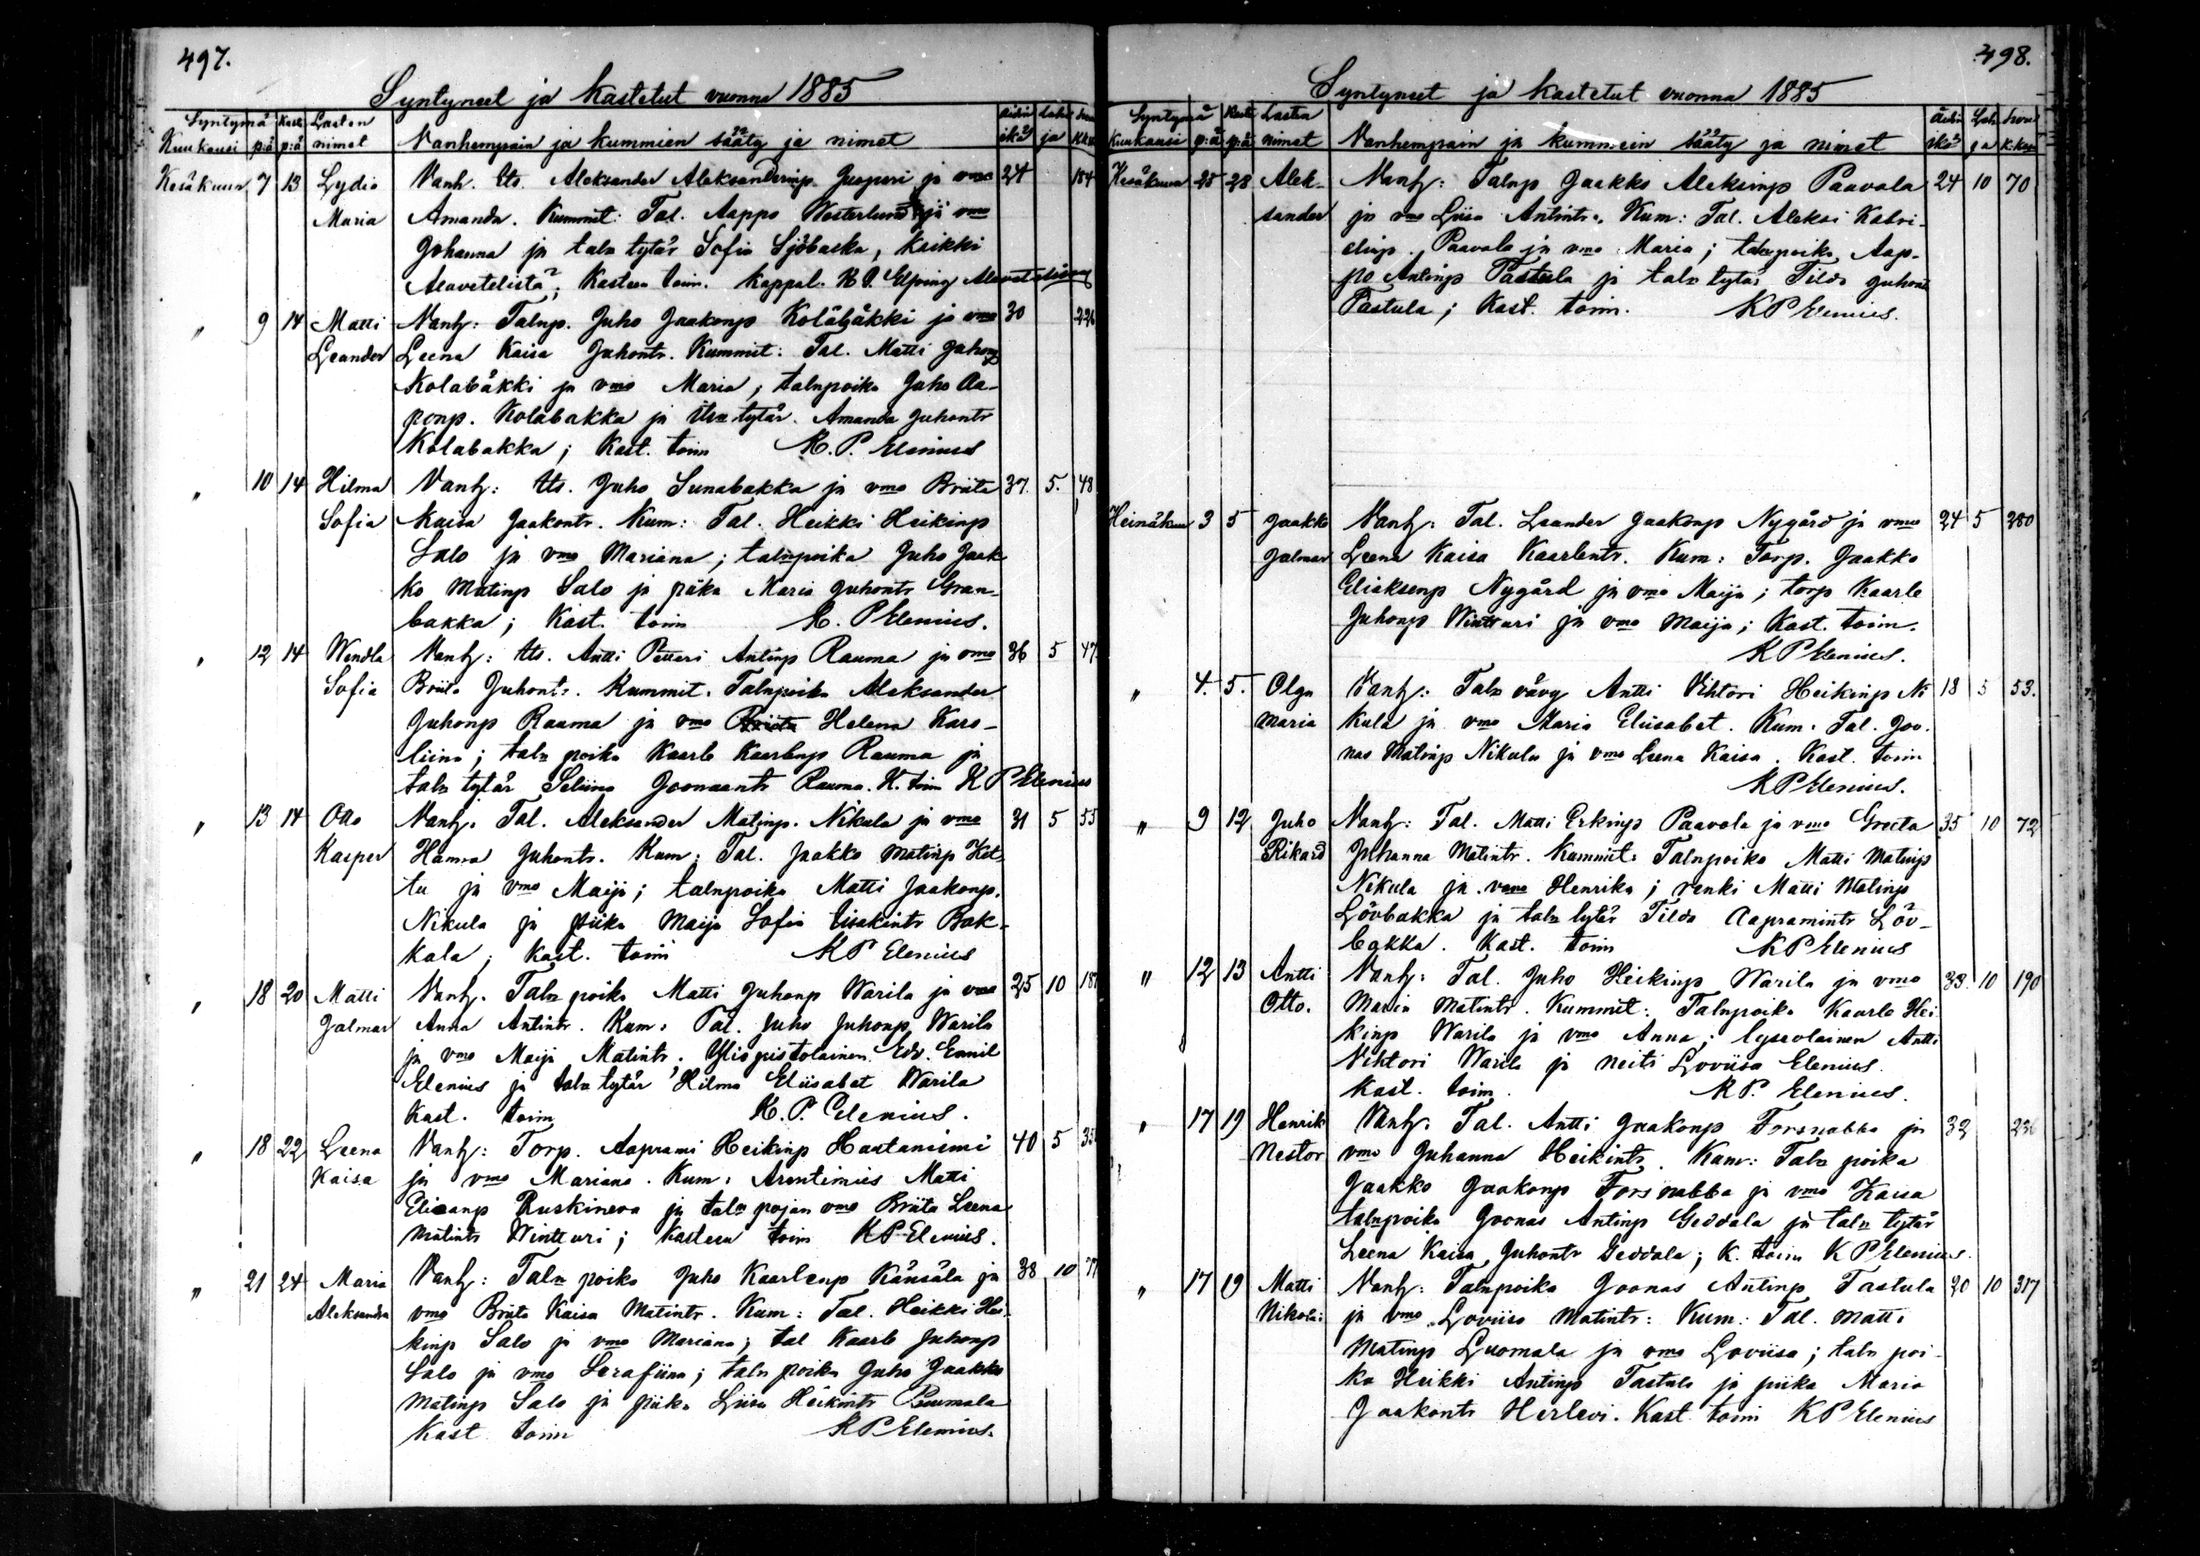 497.
Syntyneet ja kastetut vuonna 1885
Syntymä Kast. Lasten Äidin
Kuukausi p:ä p:ä nimet Vanhempain ja kummien sääty ja nimet ikä ja
Kesäkuu 7 13 Lydia Vanh. Its. Aleksander Aleksanderinp. Juuperi ja vmo 24 184
Maria Amanda. Kummit: Tal. Aappo Westerlund ja vmo
Johanna ja taln tytär Sofia Sjöbacka, kaikki
Alavetelistä; Kasteen toim. kappal. K. J. Elfving
" 9 14 Matti Vanh: Talnp. Juho Jaakonp Kolabäkki ja vmo 30 226
Leander Leena Kaisa Juhontr. Kummit: Tal. Matti Juhonp
Kolabäkki ja vmo Maria; talnpoika Juho Aa-
ponp. Kolabakka ja its. tytär Amanda Juhontr
Kolabakka; Kast. toim K. P. Elenius
" 10 14 Hilma Vanh: Its. Juho Sunabakka ja vmo Briita 37. 5. 48
Sofia Kaisa Jaakontr. Kum: Tal. Heikki Heikinp
Salo ja vmo Mariana; talnpoika Juho Jaak
ko Matinp Salo ja piika Maria Juhontr Gran-
bakka; Kast. toim K. P Elenius.
" 12 14 Wendla Vanh: Its. Antti Petteri Antinp Rauma ja vmo 36 5 47
Sofia Briita Juhontr. Kummit. Talnpoika Aleksander
Juhonp Rauma ja vmo Helena Karo-
liina; taln poika Kaarle Kaarlenp Rauma ja
taln tytär Seliina Joonaantr Rauma. K. toim K P Elenius
" 13 14 Otto Vanh. Tal. Aleksander Matinp. Nikula ja vmo 31 5 55
Kasper Hanna Juhontr. Kum: Tal. Jaakko Matinp Ket-
tu ja vmo Maija; talnpoika Matti Jaakonp.
Nikula ja piika Maija Sofia Iisakintr Bak-
kala; Kast. toim K P Elenius
" 18 20 Matti Vanh. Taln poika Matti Juhonp Warila ja vmo 25 10 187
Jalmar Anna Antintr. Kum: Tal. Juho Juhonp Warila
ja vmo Maija Matintr; Yliopistolainen Edv. Emil
Elenius ja taln tytär Hilma Eliisabet Warila
Kast. toim K. P. Elenius.
" 18 22 Leena Vanh: Torp. Aaprami Heikinp Hautaniemi 40 5
Kaisa ja vmo Mariana. Kum: Arentimies Matti
Elisanp Ruskineva ja taln pojan vmo Briita Leena
Matintr Wintturi; kasteen toim K P Elenius.
" 21 24 Maria Vanh: Taln poika Juho Kaarlenp Känsälä ja 38 10 77
Aleksandra vmo Briita Kaisa Matintr. Kum: Tal. Heikki Hei-
kinp Salo ja vmo Mariana; tal Kaarle Juhonp
Salo ja vmo Serafiina; taln poika Juho Jaakko
Matinp Salo ja piika Liisa Heikintr Puumala
Kast toim K P Elenius.
498.
Syntyneet ja kastetut vuonna 1885
Syntymä Kast. Lasten Äidin
Kuukausi p:ä p:ä nimet Vanhempain ja kummein sääty ja nimet ikä ja
Kesäkuu 25 28 Alek- Vanh: Talnp Jaakko Aleksinp Paavola 24 10 70
sander ja vmo Liisa Antintr. Kum: Tal. Aleksi Kabri-
elinp. Paavola ja vmo Maria; talnpoika Aap-
po Antinp Tastula ja taln tytär Tilda Juhont
Tastula; Kast. toim. K P Elenius.
Heinäkuu 3 5 Jaakko Vanh: Tal. Leander Jaakonp Nygård ja vmo 24 5 280
Jalmar Leena Kaisa Kaarlentr. Kum: Torp. Jaakko
Eliaksenp Nygård ja vmo Maija; torp Kaarle
Juhonp Wintturi ja vmo Maija; Kast. toim.
K P Elenius.
" 4. 5. Olga Vanh: Taln vävy Antti Vihtori Heikinp Ni 18 5 53.
Maria kula ja vmo Maria Eliisabet. Kum. Tal. Joo-
nas Matinp Nikula ja vmo Leena Kaisa. Kast. toim
K P Elenius.
" 9 12 Juho Vanh: Tal. Matti Erkinp Paavola ja vmo Greeta 35 10 72
Rikard Johanna Matintr. Kummit: Talnpoika Matti Matinp
Nikula ja vmo Henrika; renki Matti Matinp
Lövbakka ja taln tytär Tilda Aapramintr Löv-
bakka. Kast. toim K P Elenius
" 12 13 Antti Vanh: Tal. Juho Heikinp Warila ja vmo 33 10 190
Otto. Maria Matintr. Kummit: Talnpoika Kaarlo Hei-
kinp Warila ja vmo Anna; lyseolainen Antti
Viktori Warila ja neiti Loviisa Elenius.
Kast. toim. K P. Elenius.
" 17 19 Henrik Vanh. Tal. Antti Jaakonp Forsnabba ja 32
Nestor vmo Juhanna Heikintr. Kum: Taln poika
Jaakko Jaakonp Forsnabba ja vmo Kaisa
talnpoika Joonas Antinp Geddala ja taln tytär
Leena Kaisa Juhontr Geddala; K. toim K P Elenius.
" 17 19 Matti Vanh: Talnpoika Joonas Antinp Tastula 20 10 317
Nikolai ja vmo Loviisa Matintr: Kum: Tal. Matti
Matinp Luomala ja vmo Loviisa; taln poi-
ka Heikki Antinp Tastula ja piika Maria
Jaakontr Herlevi. Kast toim K P Elenius